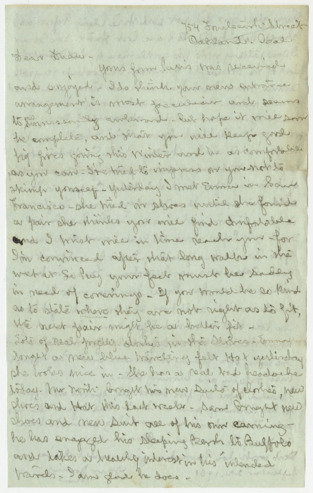 754 Fourteenth Street
Oakland, Cal
Dear Frederic
Yours from Lewis was received
and enjoyed. I do think your new
arrangement is most and seems
to But hope it will soon
be complete and that you will keep good
big fires going this winter and be as comfortable
as you can. I've tried to impress on you not to
skimp yourself - Yesterday I met Emma in San
Francisco - she tried on shoes until she founds
a pair she thinks you will find comfortable
and I trust will in time reach you - for
I'm convinced after that long walks in the
wet or so that your feet must be sadly
in need of coverings - If you would be so kind
as to state where they are not right as to fit,
the next pair might be a better fit.
Lots of real pretty clothes in the stores - Emma
bought a new blue traveling felt Hat yesterday
She looks nice in - She has a real bad headache
today. Mr. bought his new suit of clothes, new
shoes and Hat this last week. Sam bought new
shoes and new suit out of his own earning -
he has engaged his sleeping berth to Buffalo
and takes a healthy interest in his intended
travels. I am glad he does -